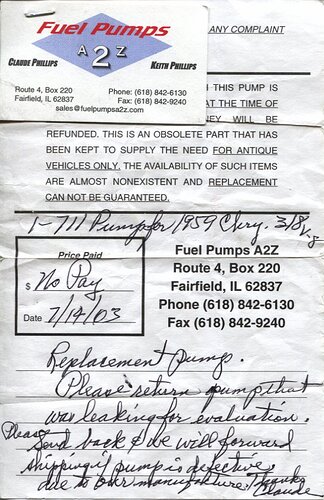 Fuel Pumps
A 2 Z
CLAUDE PHILLIPS
KEITH PHILLIPS
Route 4, Box 220
Fairfield, IL 62837
Phone: (618) 842-6130
Fax: (618) 842-9240
sales@fuelpumpsa2z.com
ANY COMPLAINT
H THIS PUMP IS
AT THE TIME OF
NEY WILL BE
REFUNDED. THIS IS AN OBSOLETE PART THAT HAS
BEEN KEPT TO SUPPLY THE NEED FOR ANTIQUE
VEHICLES ONLY. THE AVAILABILITY OF SUCH ITEMS
ARE ALMOST NONEXISTENT AND REPLACEMENT
CAN NOT BE GUARANTEED.
1-711 Pump for 1959 Chry. 318
Price Paid
$ No Pay
Date 7/14/03
Fuel Pumps A2Z
Route 4, Box 220
Fairfield, IL 62837
Phone (618) 842-6130
Fax (618) 842-9240
Replacement pump.
Please return pump that
was leaking for evaluation.
Please send back & we will forward
shipping if pump is defective
due to our manufacture. Thanks
Claude